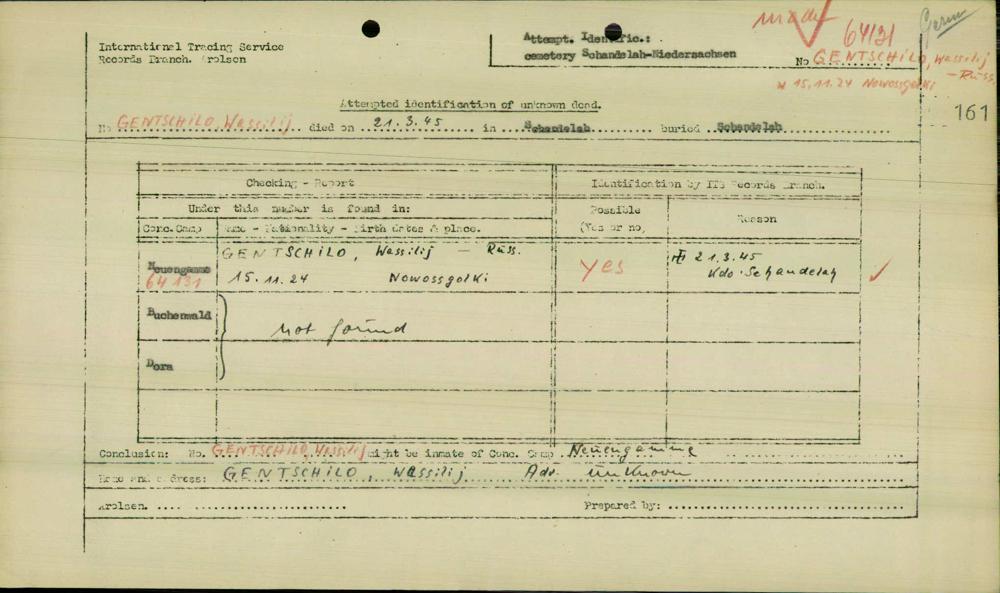 made
64131
Germ
International Tracing Service
Records Branch. Arolsen
Attempt. Identific.:
cemetery Schandelah-Niedersachsen
No GENTSCHILO, Wassilij
- Russ.
* 15.11.24 Nowossgolki
161
Attempted identification of unknown dead.
No GENTSCHILO, Wassilij died on 21.3.45 in Schandelah buried Schandelah
Checking - Report
Identification by ITS Records Branch.
Under this number is found in:
Possible
(Yes or no)
Reason
Conc. Camp
Name - Nationality - Birth dates & place.
Neuengamme
64 131
GENTSCHILO, Wassilij - Russ.
15.11.24 Nowossgolki
yes
21.3.45
Kdo. Schandelah
Buchenwald
not found
Dora
Conclusion: No. GENTSCHILO, Wassilij might be inmate of Conc. Camp Neuengamme
Name and address: GENTSCHILO, Wassilij Adr. unknown
Arolsen.
Prepared by: